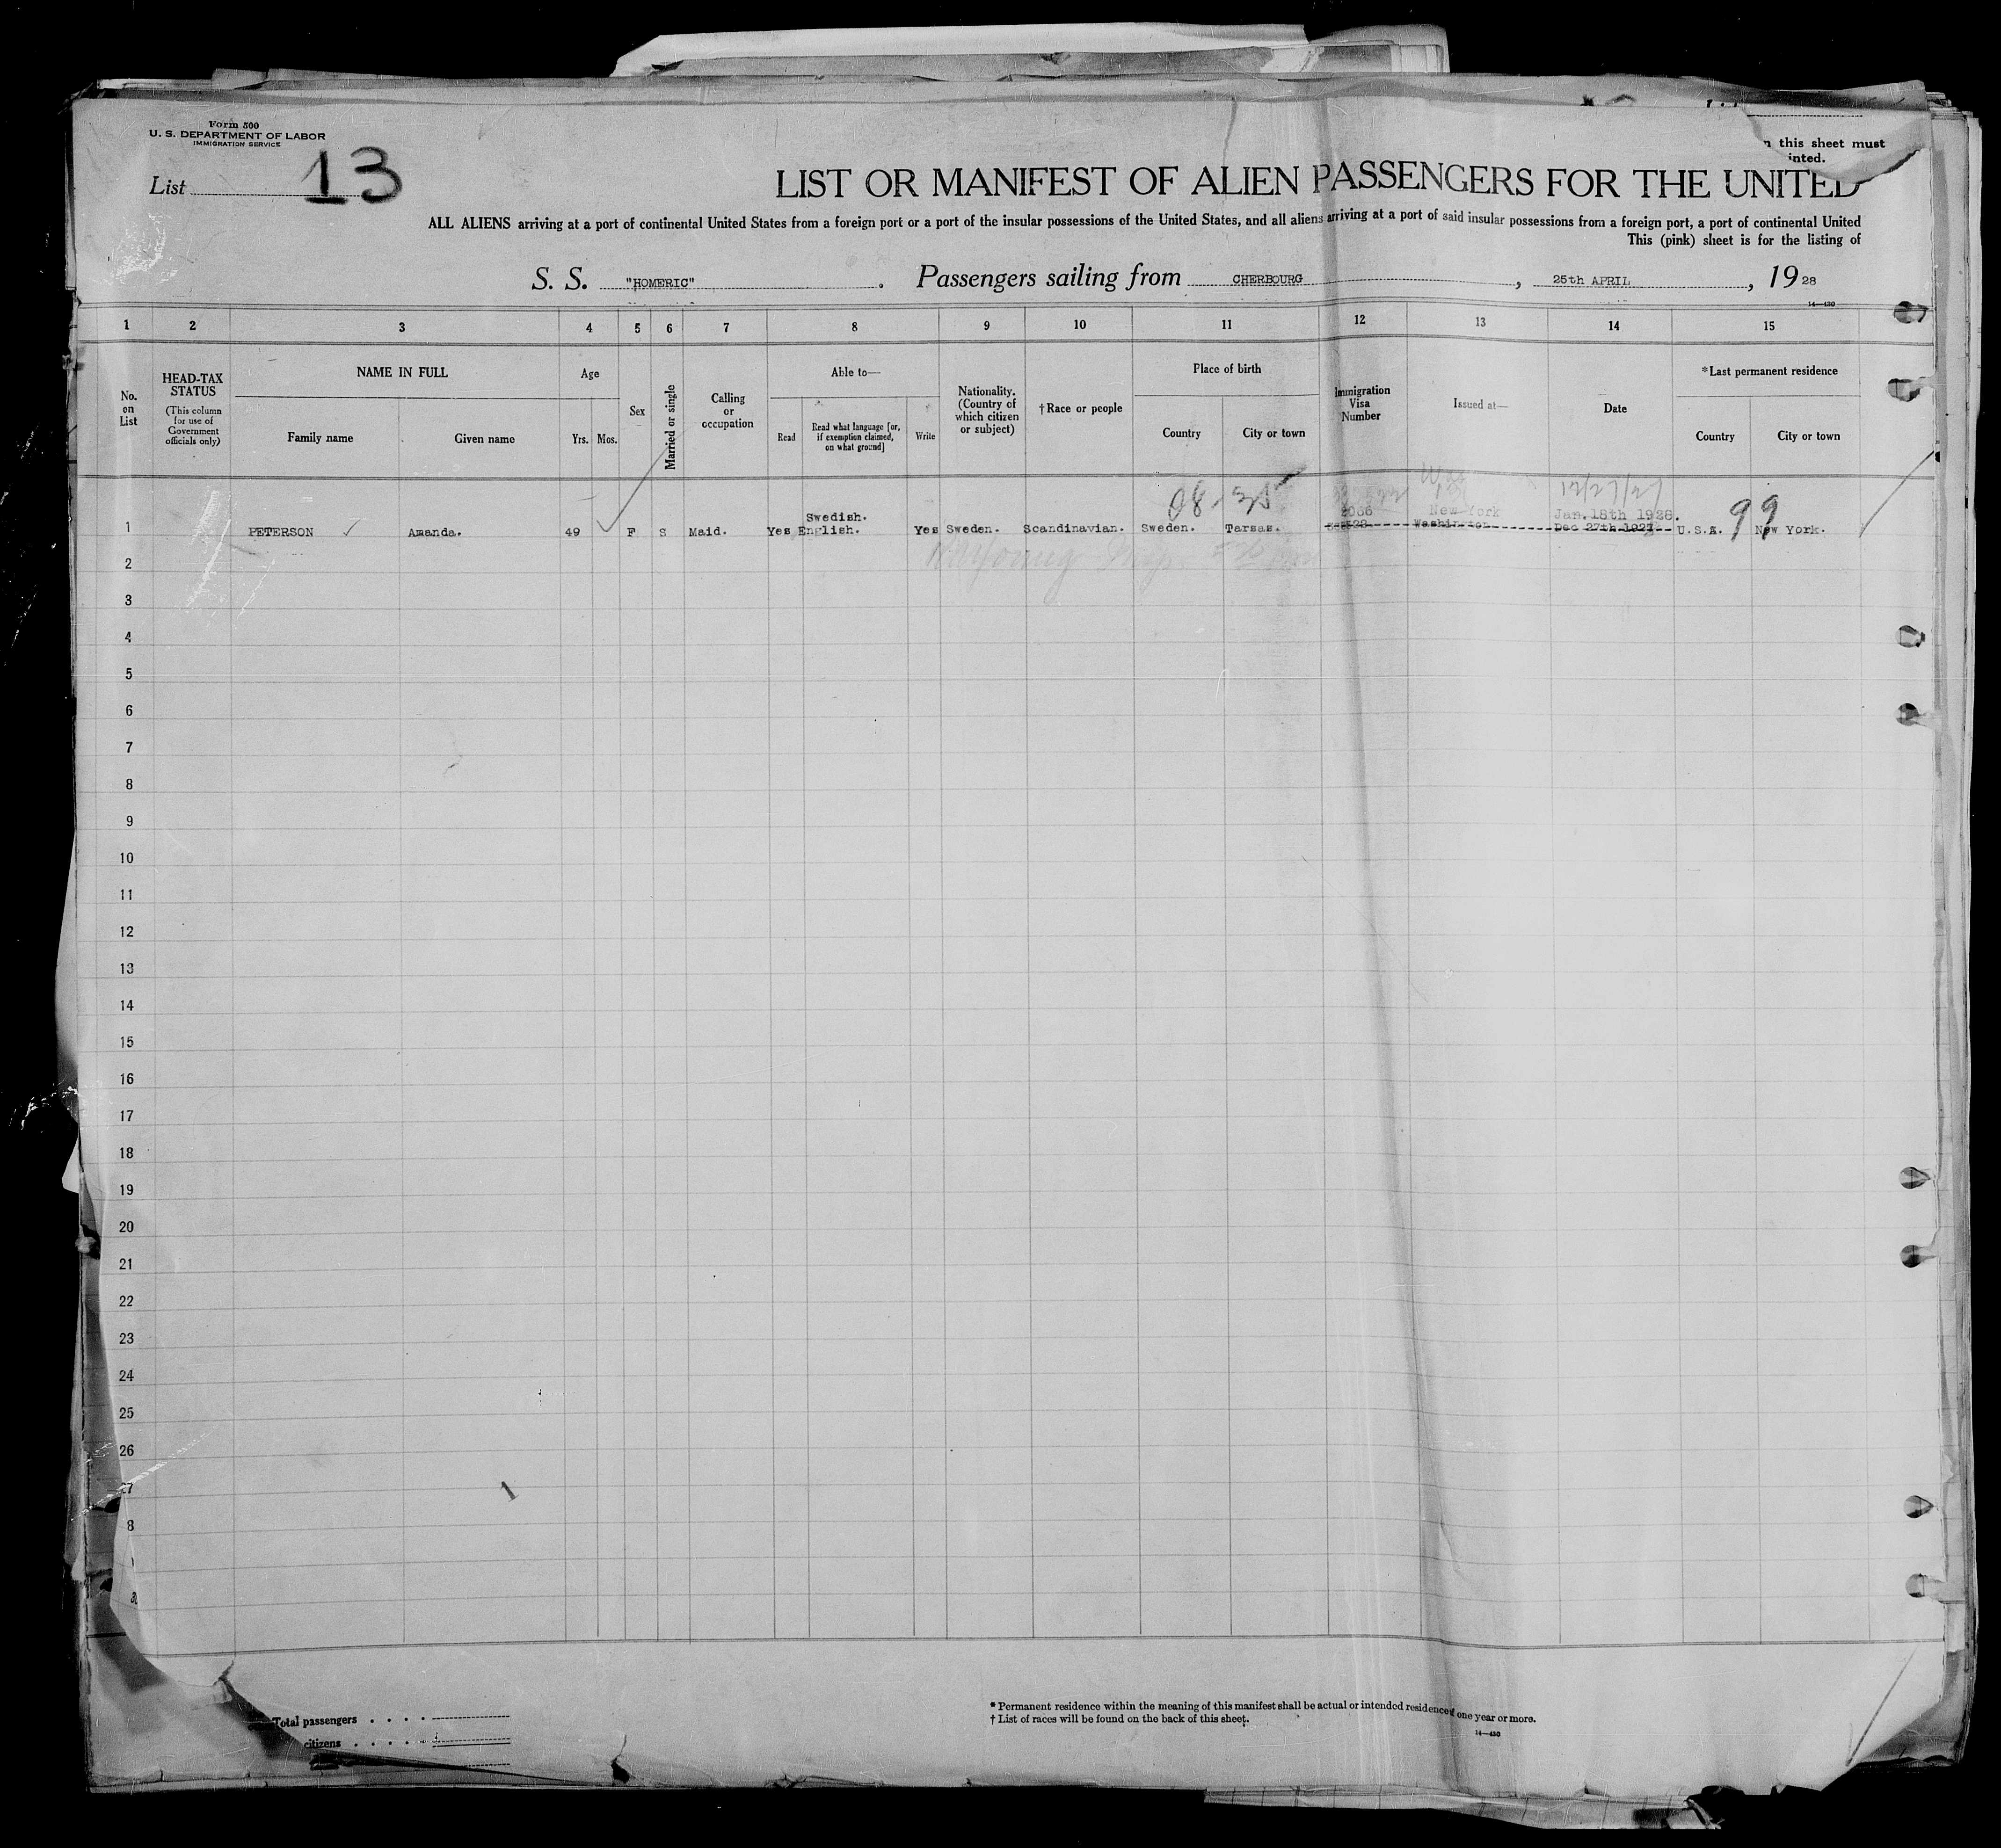 Form 500
U. S. DEPARTMENT OF LABOR
IMMIGRATION SERVICE
List 13
this sheet must
LIST OR MANIFEST OF ALIEN PASSENGERS FOR THE UNITED
ALL ALIENS arriving at a port of continental United States from a foreign port or a port of the insular possessions of the United States, and all aliens arriving at a port of said insular possessions from a foreign port, a port of continental United
This (pink) sheet is for the listing of
S. S. "HOMERIC". Passengers sailing from CHERBOURG, 25th APRIL, 1928
14—430
1 2 3 4 5 6 7 8 9 10 11 12 13 14 15
No. on List
HEAD-TAX STATUS
(This column for use of Government officials only)
NAME IN FULL
Family name Given name
Age
Yrs. Mos.
Sex
Married or single
Calling or occupation
Able to—
Read
Read what language [or, if exemption claimed, on what ground]
Write
Nationality. (Country of which citizen or subject)
†Race or people
Place of birth
Country City or town
Immigration Visa Number
Issued at—
Date
*Last permanent residence
Country City or town
08-35 12/27/27
Swedish. 2086 New York Jan. 18th 1928.
1 PETERSON Amanda. 49 F S Maid. Yes English. Yes Sweden. Scandinavian. Sweden. Tarsas. Washington Dec 27th 1927 U.S.A. 99 New York.
2
3
4
5
6
7
8
9
10
11
12
13
14
15
16
17
18
19
20
21
22
23
24
25
26
27
8
Total passengers . . . .
citizens . . . .
* Permanent residence within the meaning of this manifest shall be actual or intended residence of one year or more.
† List of races will be found on the back of this sheet.
14—430